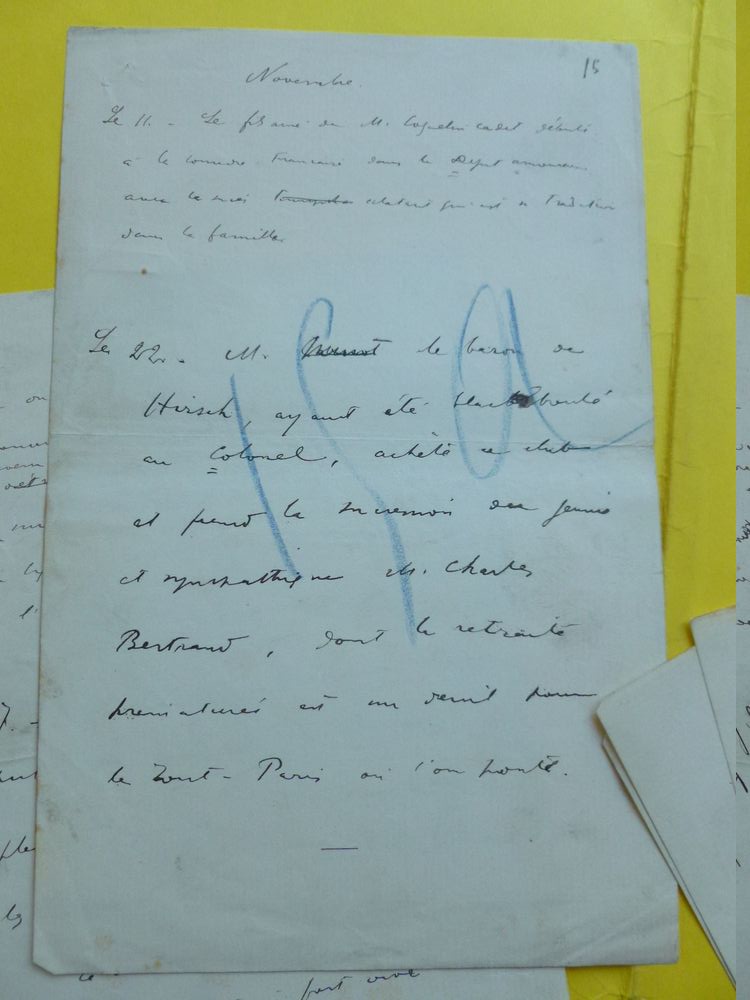 15
Novembre.
Le 11. - Le fils aîné de M. Coquelin cadet débute
à la Comédie-Française dans le Dépit amoureux
avec le succès éclatant qui est de tradition
dans la famille.
Le 22. - M. le baron de
Hirsch, ayant été blackboulé
au Colonel, achète ce club
et prend la succession du jeune
et sympathique M. Charles
Bertrand, dont la retraite
prématurée est un deuil pour
le Tout-Paris où l'on ponte.
fort